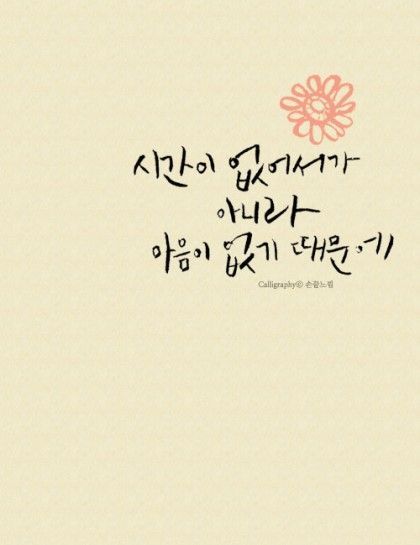 시간이 없어서가
아니라
마음이 없기 때문에
Calligraphyⓒ 손끝느낌